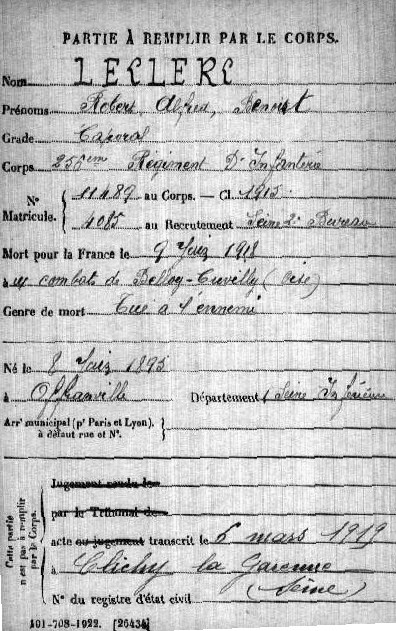 PARTIE À REMPLIR PAR LE CORPS.
Nom LECLERC
Prénoms Robert, Alfred, Benoist
Grade Caporal
Corps 256em Régiment D'Infanterie
N° Matricule. 11489 au Corps. — Cl. 1915
4085 au Recrutement Seine 2e Bureau
Mort pour la France le 9 Juin 1918
à combats de Belloy-Cuvilly (Oise)
Genre de mort Tué à l'ennemi
Né le 8 Juin 1895
à Offranville Département Seine Inférieure
Arrt municipal (pr Paris et Lyon),
à défaut rue et N°.
Cette partie n'est pas à remplir par le Corps.
Jugement rendu le
par le Tribunal de
acte ou jugement transcrit le 6 mars 1919
à Clichy la Garenne
(Seine)
N° du registre d'état civil
101-708-1922. [26434]